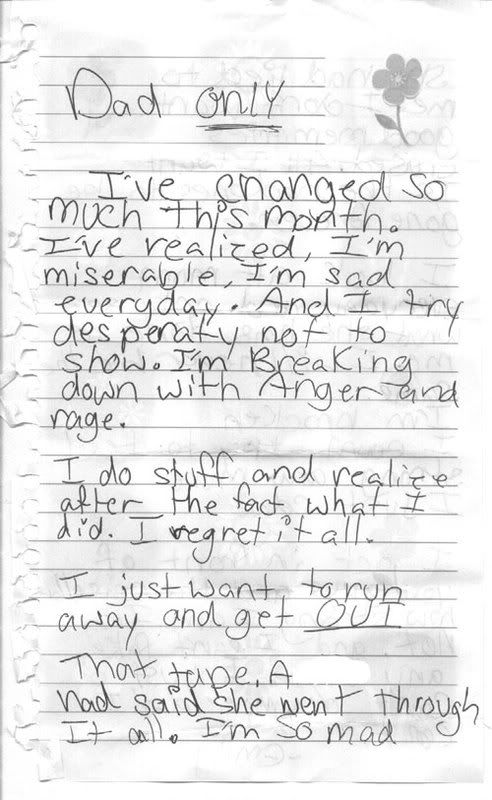 Dad ONLY
I've changed so
much this month.
I've realized, I'm
miserable, I'm sad
everyday. And I try
desperaty not to
show. I'm Breaking
down with Anger and
rage.
I do stuff and realize
after the fact what I
did. I regret it all.
I just want to run
away and get OUT
That tape, A
had said she went through
It all. I'm so mad